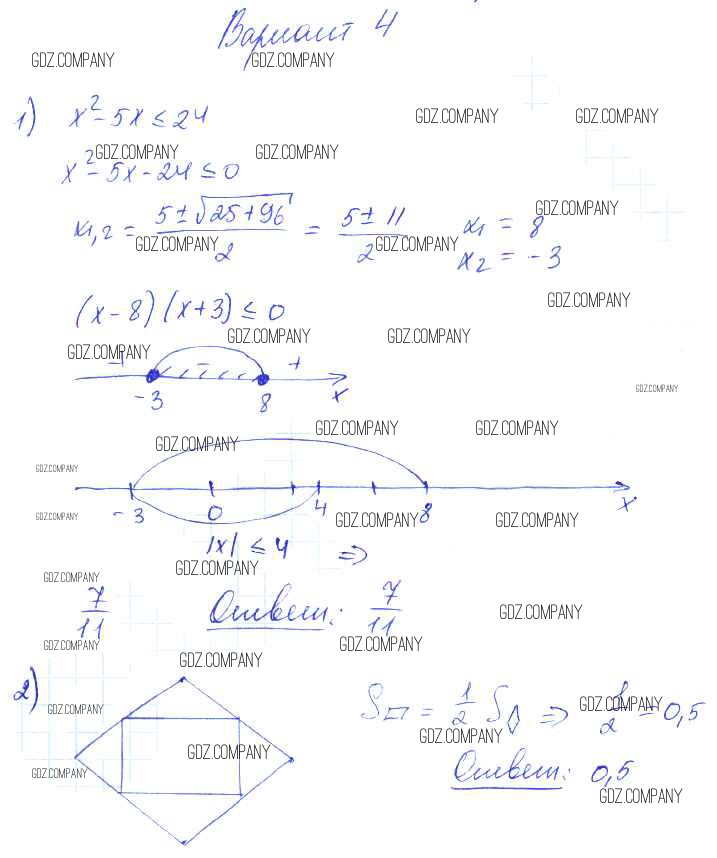 Вариант 4
GDZ.COMPANY GDZ.COMPANY
1) x² - 5x ≤ 24 GDZ.COMPANY GDZ.COMPANY
GDZ.COMPANY GDZ.COMPANY
x² - 5x - 24 ≤ 0
x₁,₂ = (5 ± √(25 + 96))/2 = (5 ± 11)/2 x₁ = 8
GDZ.COMPANY
GDZ.COMPANY GDZ.COMPANY x₂ = -3
GDZ.COMPANY
(x - 8)(x + 3) ≤ 0
GDZ.COMPANY GDZ.COMPANY
GDZ.COMPANY
+ - +
-3 8 x
GDZ.COMPANY
GDZ.COMPANY GDZ.COMPANY GDZ.COMPANY
GDZ.COMPANY
-3 0 4 8 x
GDZ.COMPANY GDZ.COMPANY GDZ.COMPANY
|x| ≤ 4 ⇒
GDZ.COMPANY GDZ.COMPANY
7/11 Ответ: 7/11
GDZ.COMPANY
GDZ.COMPANY GDZ.COMPANY
GDZ.COMPANY
2) S▱ = 1/2 S◊ ⇒ 1/2 = 0,5
GDZ.COMPANY GDZ.COMPANY
GDZ.COMPANY GDZ.COMPANY
Ответ: 0,5
GDZ.COMPANY
GDZ.COMPANY